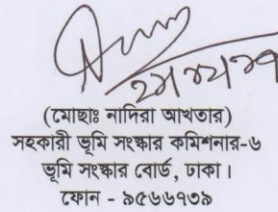 (মোছাঃ নাদিরা আখতার)
সহকারী ভূমি সংস্কার কমিশনার-৬
ভূমি সংস্কার বোর্ড, ঢাকা।
ফোন - ৯৫৬৬৭৩৯